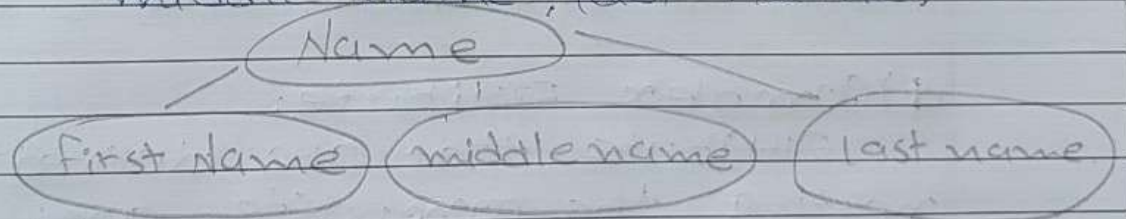 Name
first Name middle name last name